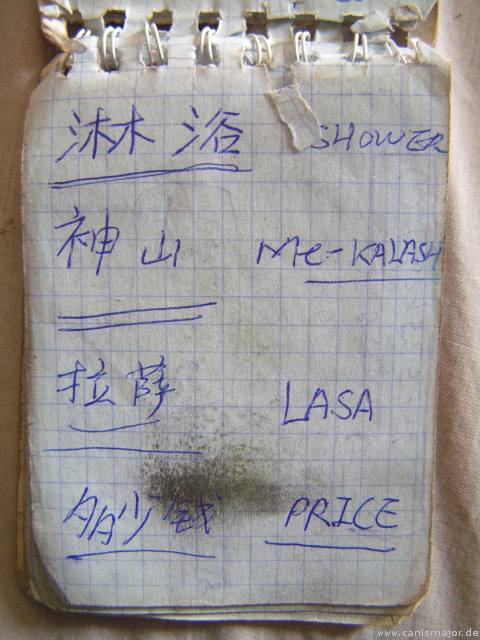 淋浴 SHOWER
神山 Mt-KALASH
拉萨 LASA
多少钱 PRICE
www.canismajor.de